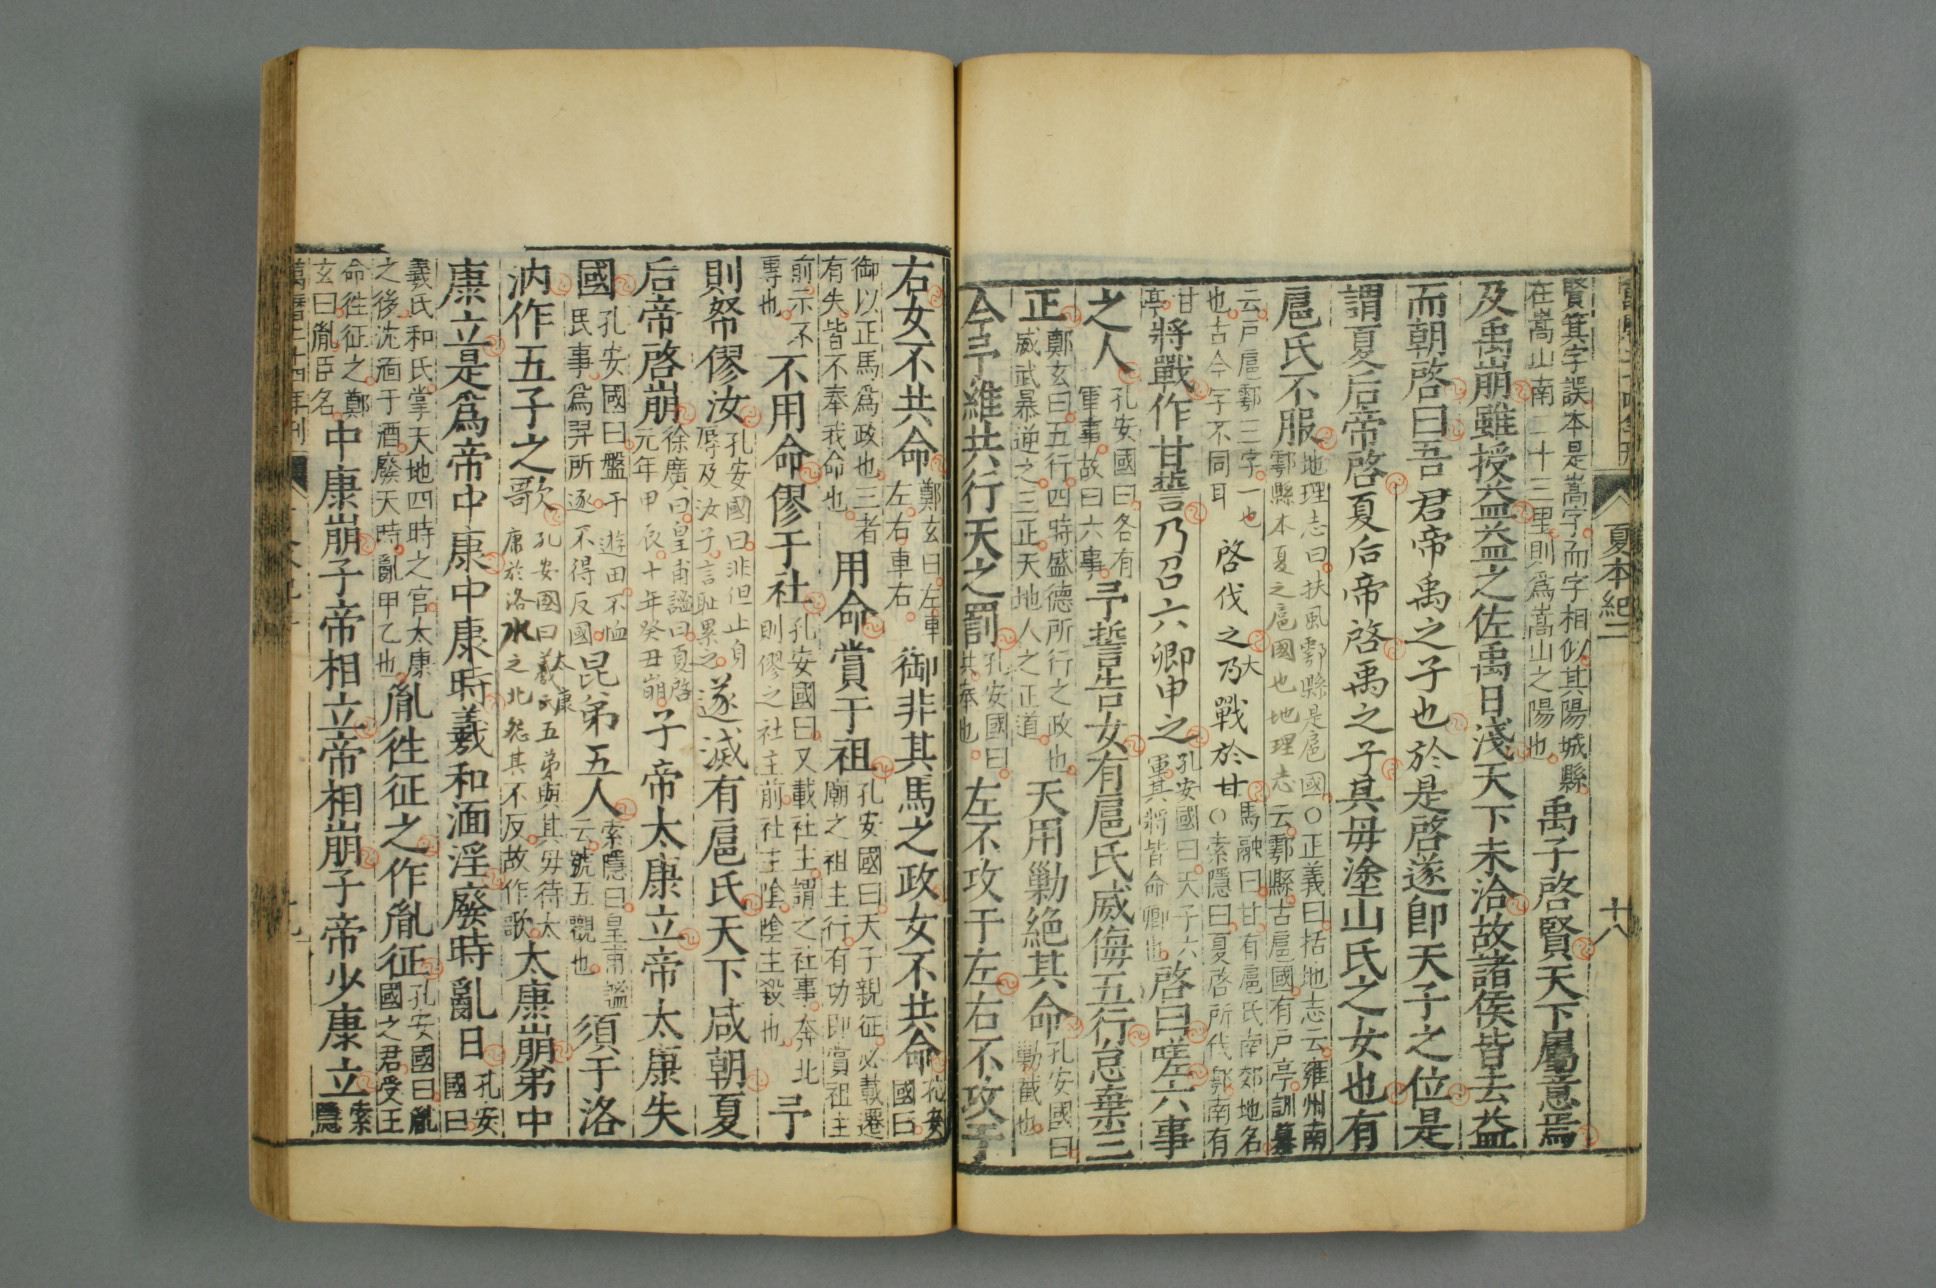 夏本紀二
十八
賢箕字誤本是嵩字而字相似其陽城縣
在嵩山南二十三里則爲嵩山之陽也
禹子啓賢天下屬意焉
及禹崩雖授益益之佐禹日淺天下未洽故諸侯皆去益
而朝啓曰吾君帝禹之子也於是啓遂卽天子之位是
謂夏后帝啓夏后帝啓禹之子其毋塗山氏之女也有
扈氏不服
地理志曰扶風鄠縣是扈國○正義曰括地志云雍州南
鄠縣本夏之扈國也地理志云鄠縣古扈國有戶亭訓纂
云戶扈鄠三字一也
也古今字不同耳
啓伐之乃大戰於甘
馬融曰甘有扈氏南郊地名
○索隱曰夏啓所伐鄠南有
甘
亭
將戰作甘誓乃召六卿申之
孔安國曰天子六
軍其將皆命卿也
啓曰嗟六事
之人
孔安國曰各有
軍事故曰六事
予誓告女有扈氏威侮五行怠棄三
正
鄭玄曰五行四時盛德所行之政也
威武暴逆之三正天地人之正道
天用勦絕其命
孔安國曰
勦截也
今予維共行天之罰
孔安國曰
共奉也
左不攻于左右不攻于
右女不共命
鄭玄曰左車
左右車右
御非其馬之政女不共命
孔安
國曰
御以正馬爲政也三者
有失皆不奉我命也
用命賞于祖
孔安國曰天子親征必載遷
廟之祖主行有功即賞祖主
前示不
專也
不用命僇于社
孔安國曰又載社主謂之社事奔北
則僇之社主前社主陰陰主殺也
予
則帑僇汝
孔安國曰非但止身
辱及汝子言恥累之
遂滅有扈氏天下咸朝夏
后帝啓崩
徐廣曰皇甫謐曰夏啓
元年甲辰十年癸丑崩
子帝太康立帝太康失
國
孔安國曰盤于遊田不恤
民事爲羿所逐不得反國
昆弟五人
索隱曰皇甫謐
云號五觀也
須于洛
汭作五子之歌
孔安國曰太康五弟與其毋待太
康於洛水之北怨其不反故作歌
太康崩弟中
康立是爲帝中康中康時羲和湎淫廢時亂日
孔安
國曰
羲氏和氏掌天地四時之官太康
之後沈湎于酒廢天時亂甲乙也
胤徃征之作胤征
孔安國曰胤
國之君受王
命徃征之鄭
玄曰胤臣名
中康崩子帝相立帝相崩子帝少康立
索
隱